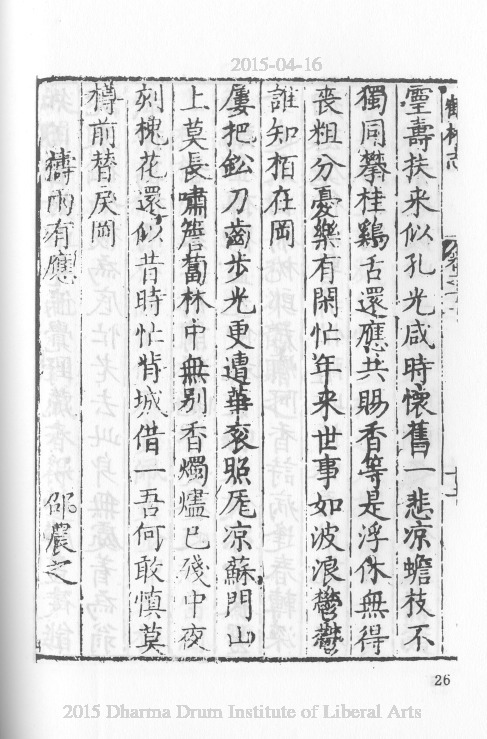 2015-04-16
靈壽扶来似孔光咸時懷舊一悲凉蟾枝不
獨同攀桂鷄舌還應共賜香等是浮休無得
丧粗分憂樂有閑忙年来世事如波浪鬱鬱
誰知栢在岡
屢把鈆刀齒步光更遭華衮照厖凉蘇門山
上莫長嘯簷蔔林中無别香燭燼已殘中夜
刻槐花還似昔時忙背城借一吾何敢慎莫
樽前替戾岡
禱雨有應 邵農之
26
2015 Dharma Drum Institute of Liberal Arts